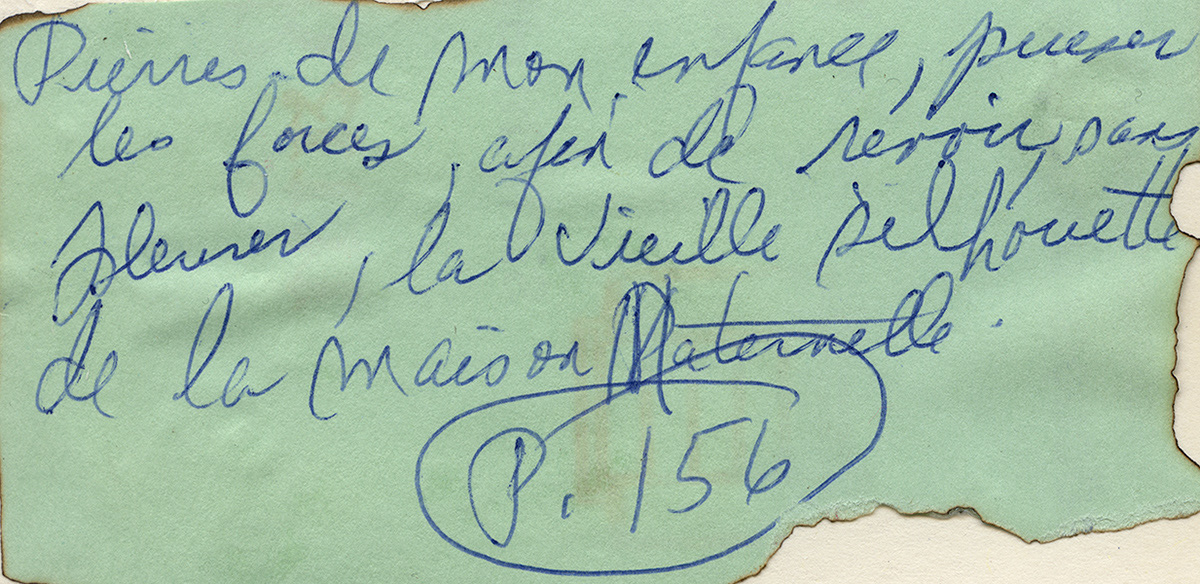 Pierres de mon enfance, puiser
les forces, afin de revoir, sans
pleurer, la vieille silhouette
de la maison Maternelle.
P. 156